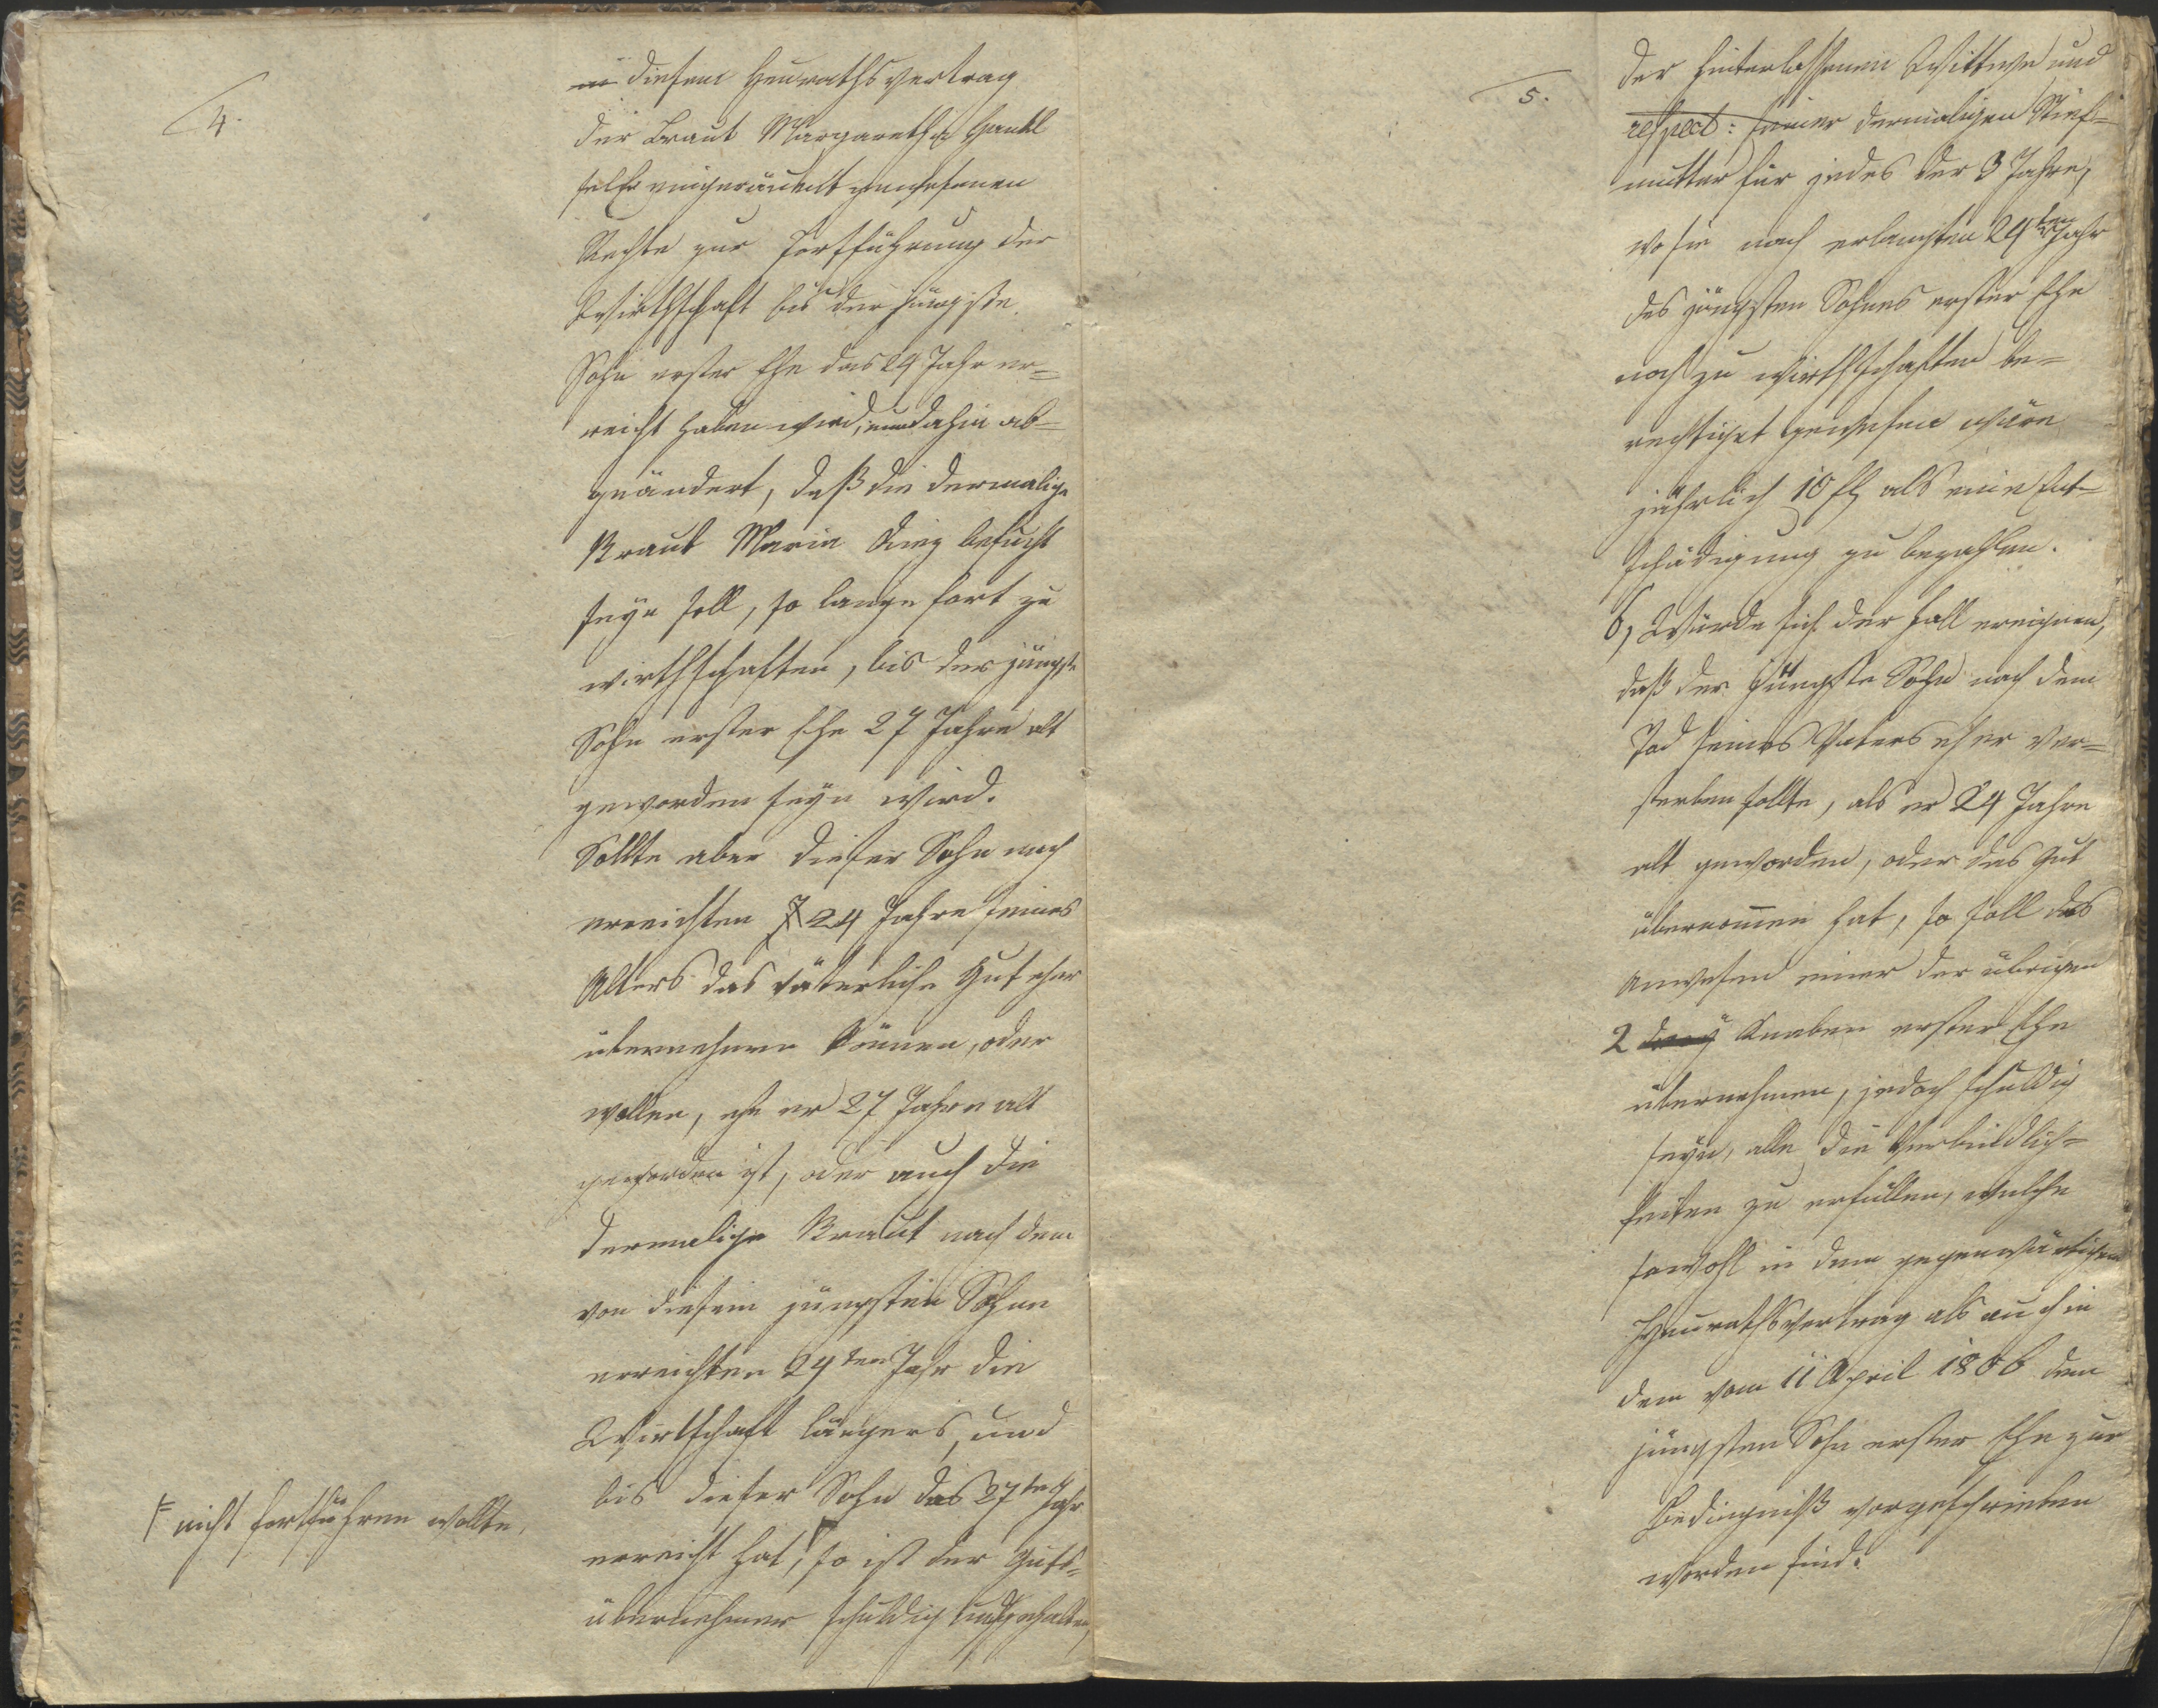 4.
in diesem Heurathsvertrag
der Braut Margaretha Hantl
selbe eingeräumt gewesenen
Rechte zur Fortführung der
Wirthschaft bis der jüngste
Sohn erster Ehe das 24 Jahr er=
reicht haben wird, nun dahin ab=
geändert, daß die dermalige
Braut Maria befugt
seyn soll, so lange fort zu
wirthschaften, bis der jüngste
Sohn erster Ehe 27 Jahre alt
geworden seyn wird.
Sollte aber dieser Sohn nach
erreichten 24 Jahre seines
Alters das väterliche Gut eher
übernehmen können, oder
wollen, ehe er 27 Jahre alt
geworden ist, oder auch die
dermalige Braut nach dem
von diesem jüngsten Sohne
erreichten 24ten Jahr die
Wirtschaft längers, und
bis dieser Sohn das 27te Jahr
erreicht hat, so ist der Guts=
übernehmer schuldig und gehalten,
nicht fortführen wollte,
5.
der hinterlassenen Wittwe und
respect: seiner dermaligen Stief=
mutter für jedes der 3 Jahre,
wo sie nach erlangten 24ten Jahr
des jüngsten Sohnes erster Ehe
noch zu wirthschaften be=
rechtiget gewesen wäre
jährlich 10 fl als eine Ent=
schädigung zu bezahlen.
6, Würde sich der Fall ereignen,
daß der jüngste Sohn nach dem
Tod seines Vaters eher ver=
sterben sollte, als er 24 Jahre
alt geworden, oder das Gut
übernomen hat, so soll das
Anwesen einer der übrigen
2 drey Knaben erster Ehe
übernehmen, jedoch schuldig
seyn, alle die Verbindlich=
keiten zu erfüllen, welche
sowohl in dem gegenwärtigen
Heurathsvertrag als auch in
dem vom 11 April 1806 dem
jüngsten Sohn erster Ehe zur
Bedingniß vorgeschrieben
worden sind.